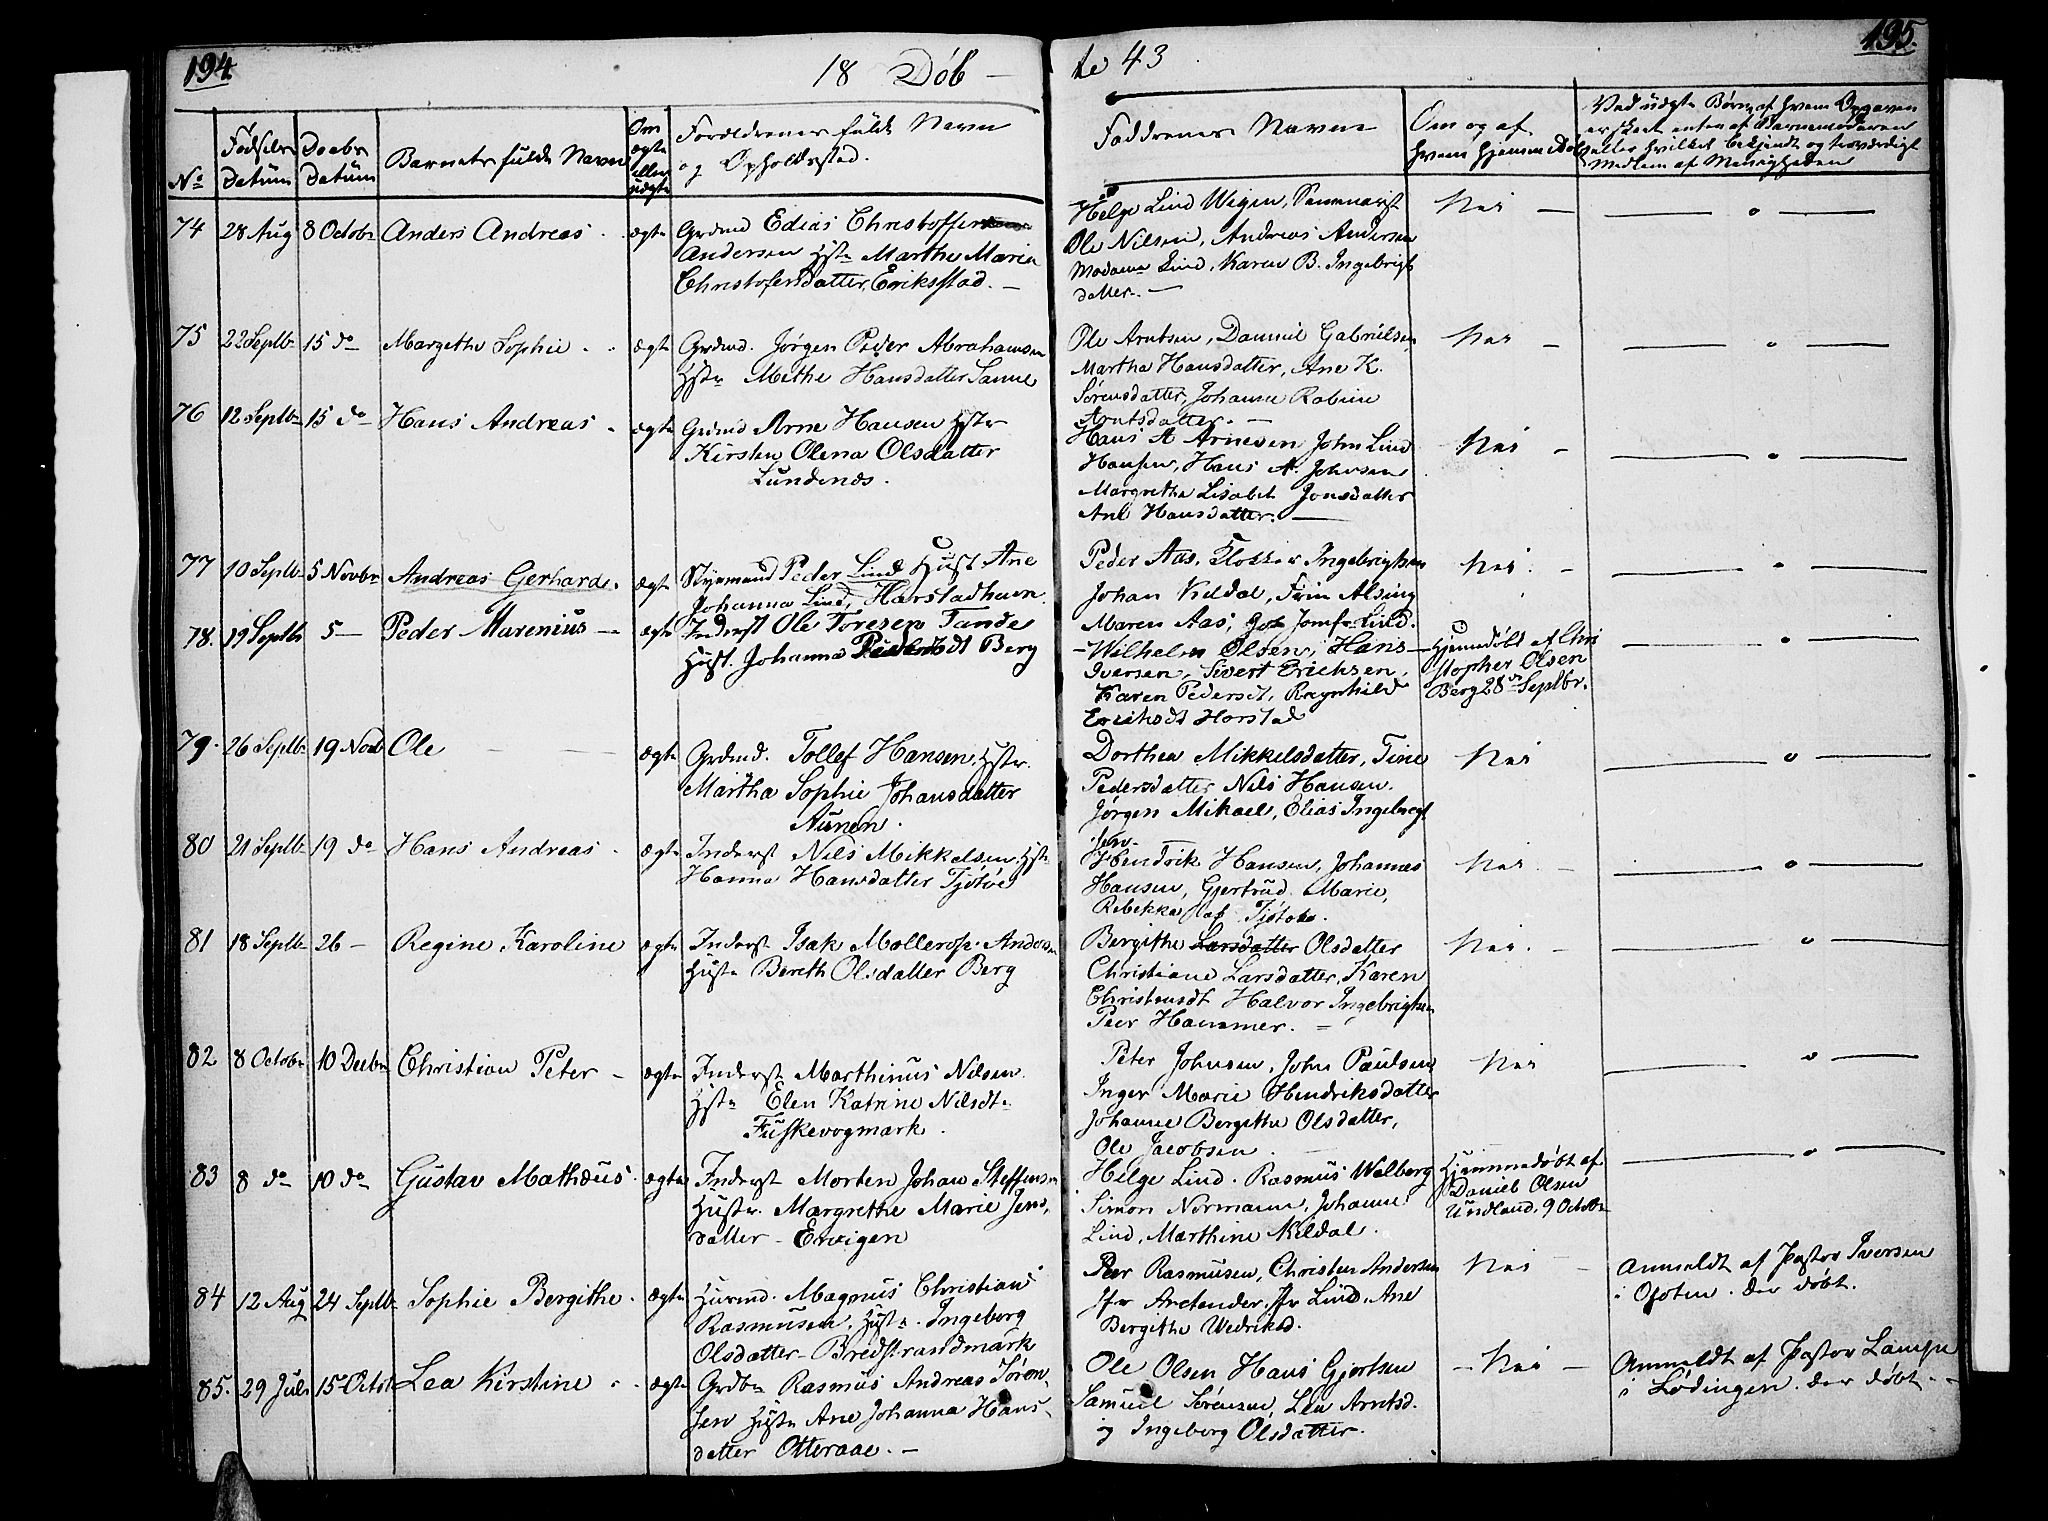 194.
18 Döb -
te 43
195.
No
Fødsels Datum
Daabs Datum
Barnets fulde Navn
Om ægte eller uægte
Forældrenes fulde Navn og Opholdssted.
Faddrenes Navne
Om og af hvem hjemmedöbt
Ved uægte Børn, af hvem Opgaven er skeet enten af Barnemoderen eller hvilket bekjendt og troværdigt Medlem af Menigheden
74 28 Aug 8 Octobr Anders Andreas ægte Grdmd Edias Christoffer
Andersen Hstr Marthe Maria
Christofersdatter, Eriksstad. -
Helge Lind Wigen,
Ole Nilsen, Andreas Andersen
Madame Lind, Karen B. Ingebrigt
datter. -
Nei -
75 22 Septb 15 do Margethe Sophie ægte Grdmd. Jørgen Peder Abrahamsen
Hstr Methe Hansdatter Sanne
Ole Arntsen, Daniel Gabrielsen
Martha Hansdatter, Ane K.
Sørensdatter, Johanna Robine
Arntsdatter. -
Nei -
76 12 Septbr 15 do Hans Andreas ægte Grdmd Arne Hansen Hstr
Kirsten Olena Olsdatter
Lundenes.
Hans A Arnesen John Lind
Hansen, Hans A. Johnsen
Margrethe Lisabet Jonsdatter
Ane Hansdatter. -
Nei -
77 10 Septb 5 Novbr Andreas Gerhard. ægte Styrmand Peder Lind Hust Ane
Johanna Lind, Harstadhavn.
Peder Aas, Klokker Ingebrigtsen
Johan Kildal, Fru Alsing
Maren Aas, Jomfr Lind.
Nei.
78. 19 Septb 5 - Peder Marenius - ægte Inderst Ole Toresen Tande
Hust. Johanna Pedersdt Berg
- Wilhelm Olsen, Hans
Iversen, Sivert Ericksen,
Karen Pedersdt, Ragnhild
Eriksdt Harstad
Hjemmedöbt af Chri
stopher Olsen
Berg 28 Septbr.
79. 26 Septb 19 Novb Ole ægte Grdmd. Tollef Hansen, Hstr.
Martha Sophie Johansdatter
Aunen.
Dorthea Mikkelsdatter, Tine
Pedersdatter Nils Hansen.
Jørgen Mikael, Elias Ingebrigt
sen.
Nei
80 21 Septb 19 do Hans Andreas ægte Inderst Nils Mikkelsen Hstr
Hanna Hansdatter Tjötöe
Hendrik Hansen, Johannes
Hansen, Gjertrud Marie,
Rebekka, af Tjötöe.
Nei.
81 18 Septb 26 - Regine Karoline ægte Inderst Isak Mallerop Andersen
Hustr Bereth Olsdatter Berg
Bergithe Larsdatter Olsdatter
Christiane Larsdatter, Karen
Christensdt Halvor Ingebrigtsen
Peer Hammer. -
Nei.
82 8 Octobr 10 Decbr Christian Peter - ægte Inderst Marthinus Nilsen
Hstr Elen Katrine Nilsdt
Fuskevogmark.
Peter Johnsen, John Paulsen
Inger Marie Hendriksdatter
Johanne Bergithe Olsdatter,
Ole Jacobsen
Nei
83 8 do 10 do Gustav Mathæus ægte Inderst Morten Johan Steffensen
Hustr. Margrethe Marie Jens
datter - Ervigen
Helge Lind. Rasmus Walberg
Simon Normann, Johanne
Lind, Marthine Kildal.
Hjemmedöbt af
Daniel Olsen
Undland, 9 Octobr
84 12 Aug 24 Septb Sophie Bergithe ægte Husmd. Magnus Christian
Rasmusen, Hustr. Ingeborg
Olsdatter - Bredstrandmark
Peer Rasmusen, Christen Andersen
Jfr Arctander. Jfr Lind, Ane
Bergitha Wedriksd.
Nei
Anmeldt af Pastor Iversen
i Ofoten. der döbt.
85. 29 Juli 15 Octob Lea Kirstine ægte Grdbr Rasmus Andreas Sören
sen Hustr Ane Johanna Hans
datter Otteraae. -
Ole Olsen Hans Gjertsen
Samuel Sørensen, Lea Arntsd.
og Ingeborg Olsdatter.
- Nei -
Anmeldt af Pastor
i Lödingen. der döbt. -